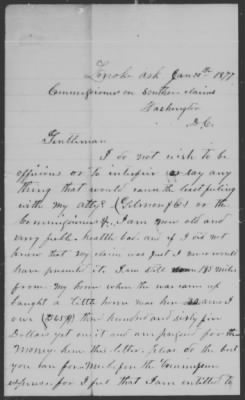 Lonoke Ark Jan 20th 1877
Commissioner on Southern claims
Washington
D.C.
Gentleman
I do not wish to be
officious or to interfere or say any
thing that would cause the least feling
with my attys (Gilmore & Co or the
Commissioners &c, I am now old and
very feble health bad and if I did not
know that my claim was Just I never would
have presented it, I am still 185 miles
from my home when the war came up
bought a little home was her and I
owe ($365) three hundred and sixty five
Dollars yet on it and am pushed for the
money hence this letter, pleas do the best
you can for me before the Commission
expires for I feel that I am entitled to